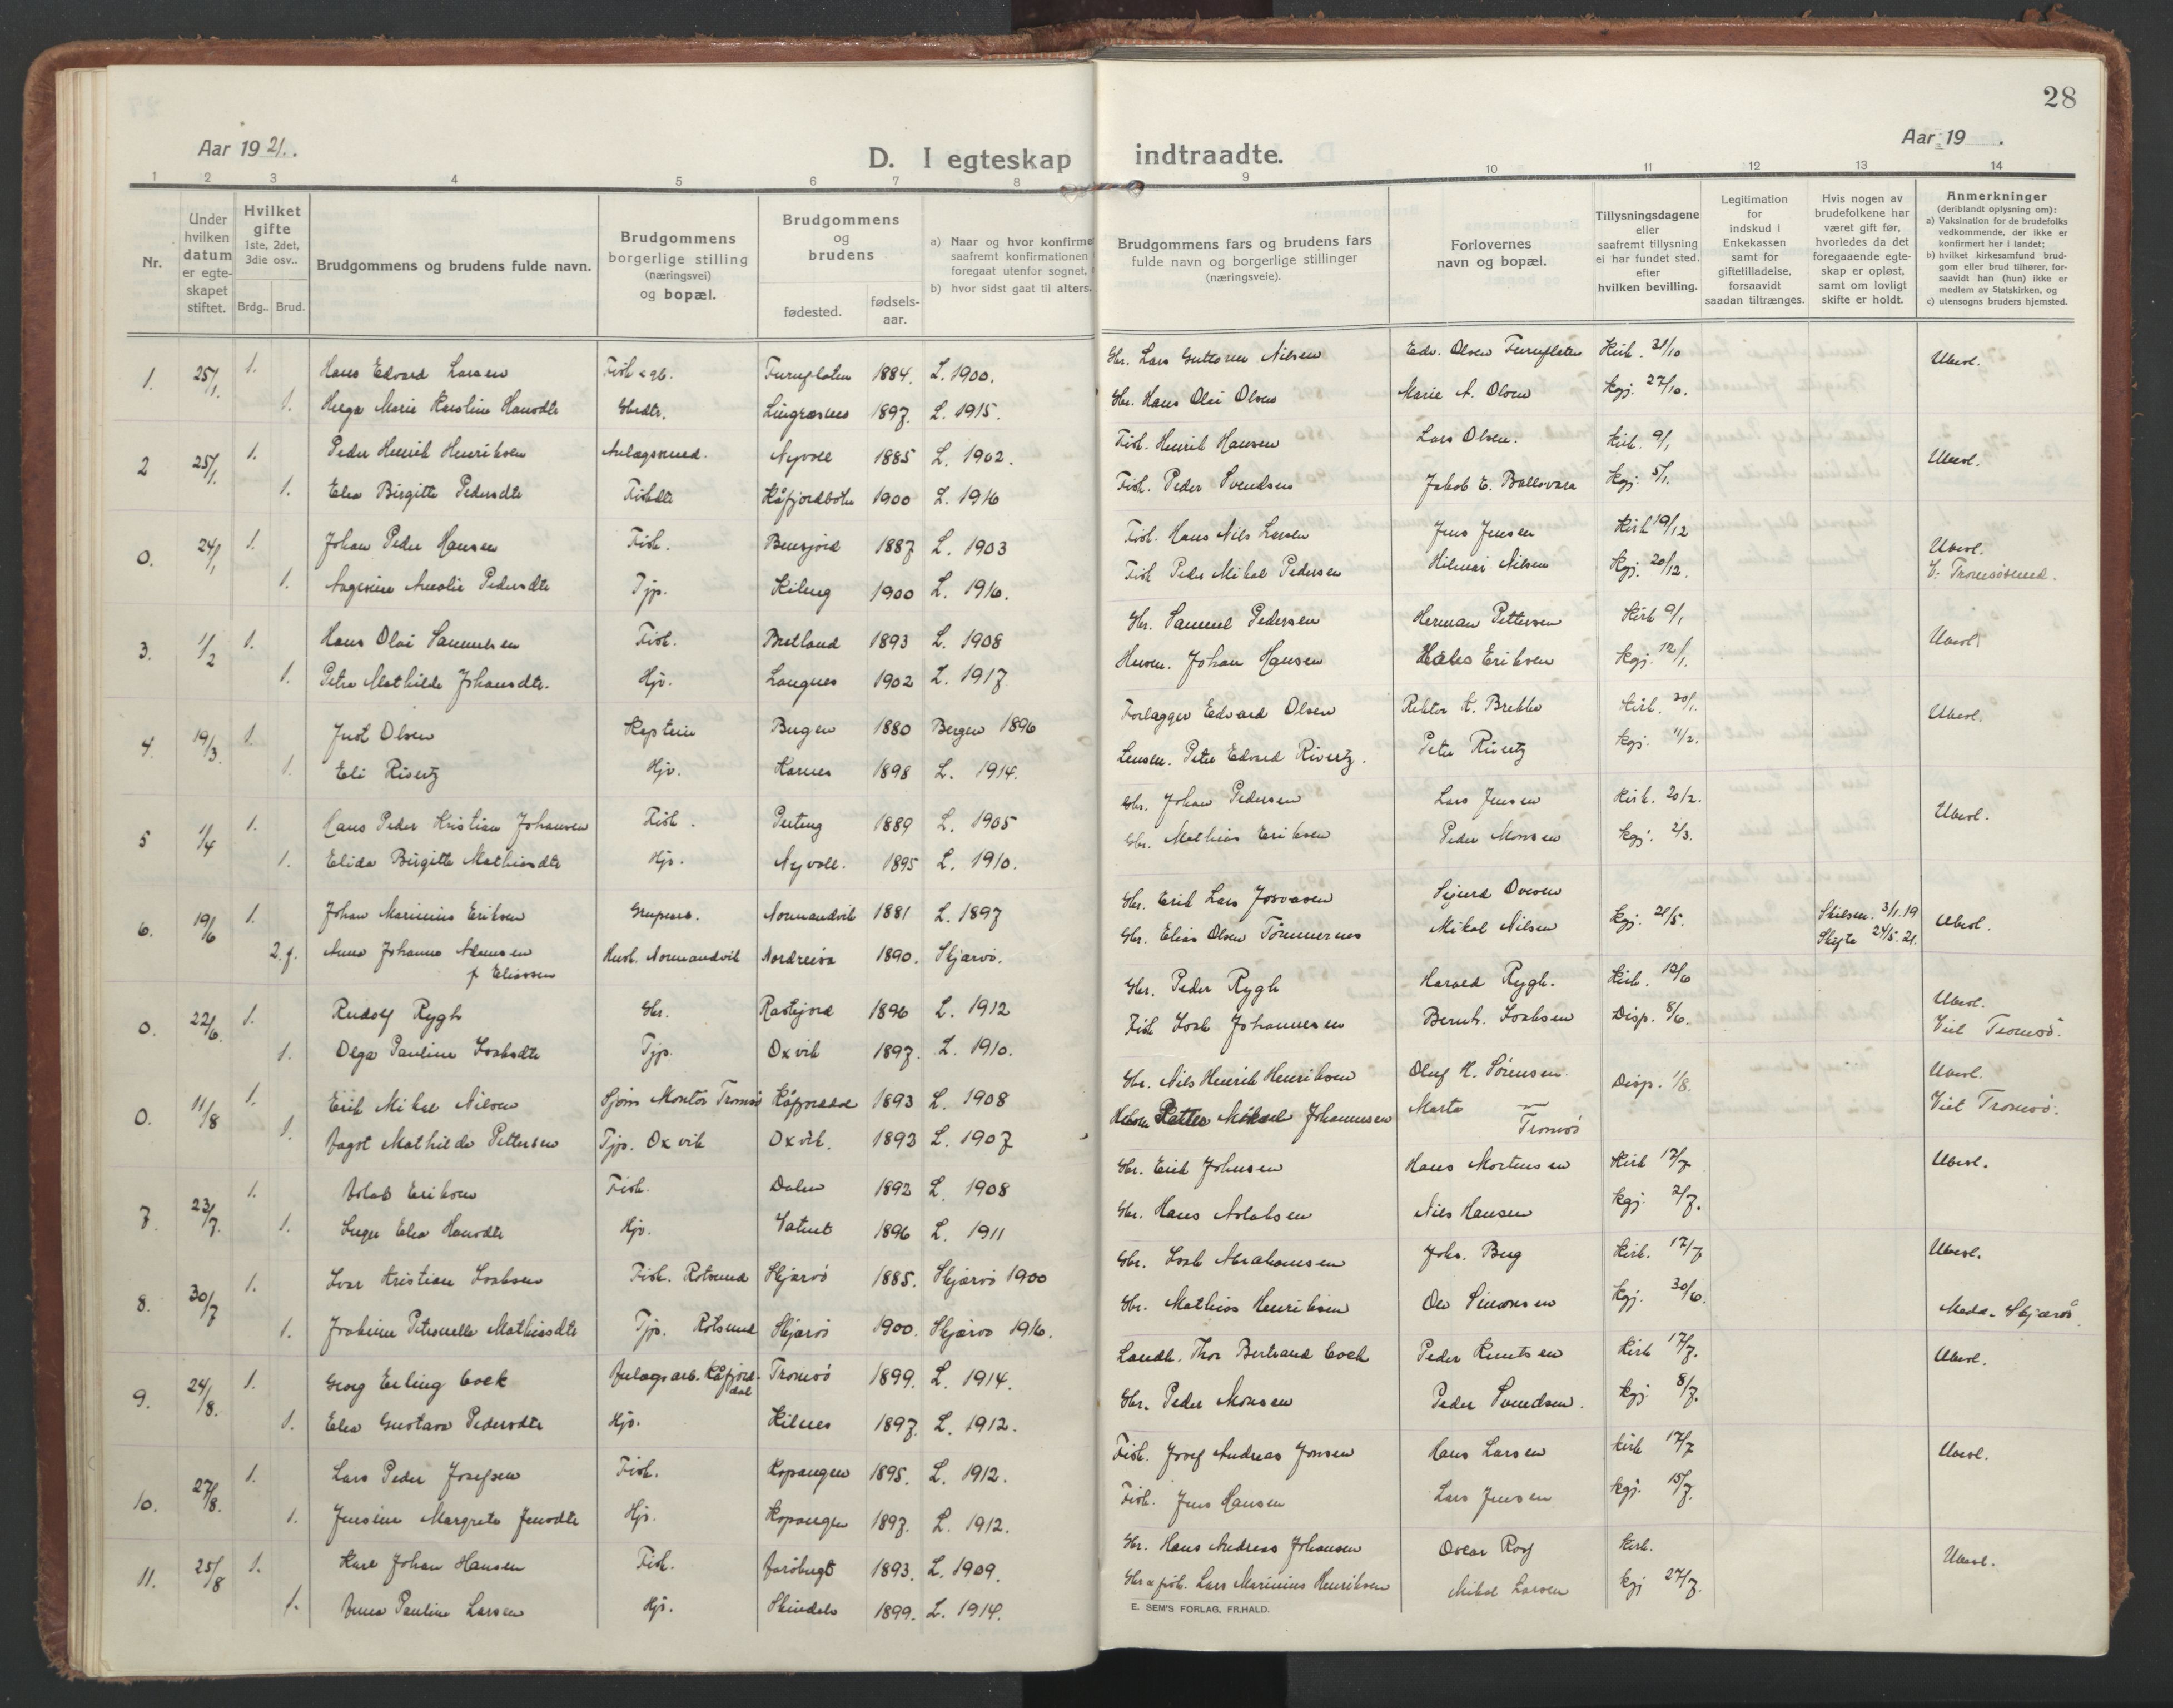 28
Aar 1921.
D. I egteskap indtraadte.
Aar 19 .
1 2 3 4 5 6 7 8 9 10 11 12 13 14
Nr.
Under hvilken datum er egteskapet stiftet.
Hvilket gifte 1ste, 2det, 3die osv..
Brdg.. Brud.
Brudgommens og brudens fulde navn.
Brudgommens borgerlige stilling (næringsvei) og bopæl.
Brudgommens og brudens
fødested.
fødsels-aar.
a) Naar og hvor konfirme
saafremt konfirmationen
foregaat utenfor sognet,
b) hvor sidst gaat til alters.
Brudgommens fars og brudens fars fulde navn og borgerlige stillinger (næringsveie).
Forlovernes navn og bopæl.
Tillysningsdagene eller saafremt tillysning ei har fundet sted, efter hvilken bevilling.
Legitimation for indskud i Enkekassen samt for giftetilladelse, forsaavidt saadan tiltrænges.
Hvis nogen av brudefolkene har været gift før, hvorledes da det foregaaende egteskap er opløst, samt om lovligt skifte er holdt.
Anmerkninger (deriblandt oplysning om):
a) Vaksination for de brudefolks vedkommende, der ikke er konfirmert her i landet;
b) hvilket kirkesamfund brudgom eller brud tilhører, forsaavidt han (hun) ikke er medlem av Statskirken, og
c) utensogns bruders hjemsted.
1. 25/1. 1. Hans Edvard Larsen Fisk & gb. Furuflaten 1884. L. 1900. Gbr. Lars Guttorm Nilsen Edv. Olsen Furuflaten Kirk. 31/10 Ubesl.
1. Helga Marie Karoline Hansdtr Gbrdtr. Lyngsnes 1897. L. 1915. Gbr. Hans Olai Olsen Marie A. Olsen Kgj. 27/10.
2 25/1. 1. Peder Henrik Henriksen Anlagsmed. Nyvoll 1885 L. 1902. Fisk. Henrik Hansen Lars Olsen. Kirk. 9/1 Ubesl.
1. Elea Birgitte Pedersdtr Fiskdtr Kåfjordbotn 1900 L. 1916 Fisk. Peder Svendsen Jakob E. Ballovara Kgj. 5/1.
0. 24/1 1. Johan Peder Hansen Fisk. Bensjord 1887 L. 1903 Fisk. Hans Nils Larsen Jens Jensen Kirk 19/12 Ubesl.
1. Aagesine Amalie Pedersdtr Tjp. 1900 L. 1916. Fisk Peder Mikal Pedersen Hilmar Nilsen Kgj. 20/12. V: Tromsøsund.
3. 1/2 1. Hans Olai Samuelsen Fisk. Bretland 1893 L. 1908 Gbr. Samuel Pedersen Herman Pettersen Kirk 9/1 Ubesl.
1. Petra Mathilde Johansdtr. Hjv. Langnes 1902 L. 1917 Husm. Johan Hansen Hans Eriksen Kgj. 12/1.
4 19/3. 1. Just Olsen Kaptein Bergen 1880 Bergen 1896 Forlægger Edvard Olsen Rektor K. Brekke Kirk. 30/1. Ubesl.
1. Eli Rivertz Hjv. Karnes 1898 L. 1914. Lensm. Peter Edvard Rivertz. Peter Rivertz Kgj. 11/2.
5 1/4 1. Hans Peder Kristian Johansen Fisk. 1889 L. 1905 Gbr. Johan Pedersen Lars Jensen Kirk. 20/2. Ubesl.
1. Elida Birgitte Mathisdtr Hjv. Nyvoll. 1895 L. 1910. Gbr. Mathias Eriksen Peder Monsen Kgj. 2/3.
6. 19/6 1. Johan Marinius Eriksen Grupearb. Normandvik 1881 L. 1897 Gbr. Erik Lars Josvasen Sigurd Ovesen Skilsm. 3/1.19
2. g. Anna Johanna Adamsen f Eliassen Husb. Normandvik Nordreisa 1890. Skjærvö. Gbr. Elias Olsen Mikal Nilsen Kgj. 21/5. Skifte 24/5. 21. Ubesl.
0. 22/6. 1. Rudolf Rygh Gbr. Rastfjord 1896 L. 1912 Gbr. Peder Rygh Harald Rygh. Kirk. 12/6 Ubesl.
1. Olga Pauline Isaksdtr Tjp. Oxvik 1897. L. 1910. Fisk Isak Johannesen Bernh. Isaksen Disp. 8/6. Viet Tromsö.
0. 11/8 1. Erik Mikal Nilsen Montör Tromsö Kåfjorddal 1893 L. 1908 Gbr. Nils Henrik Henriksen Oluf H. Sörensen. Disp. 1/8. Ubesl.
1. Dagot Mathilde Pettersen Tjp. Oxvik Oxvik. 1893 L. 1907 Petter Mikael Johannesen Marta — Tromsö Viet Tromsö.
7. 23/7. 1. Aslak Eriksen Fisk. Dalen 1892 L. 1908 Gbr. Erik Johnsen Hans Mortensen Kirk 17/7 Ubesl.
1. Inger Elea Hansdtr Hjv. 1896 L. 1911 Gbr. Hans Aslaksen Nils Hansen Kgj. 2/7.
8. 30/7 1. Ivar Kristian Isaksen Fisk. Rotsund Skjærvö 1885. Skjærvö 1900 Gbr. Isak Abrahamsen Johs. Berg Kirk. 17/7 Ubesl.
1. Joakime Petronelle Mathisdtr Tjp. Rotsund Skjærvö 1900. Skjærvö 1916. Gbr. Mathias Henriksen Ole Simonsen Kgj. 30/6. Medd. Skjærvö.
9. 24/8. 1. Georg Erling Cock Anlagsarb. Kåfjorddal Tromsö 1899. L. 1914. Landh. Thor Bertrand Coch Peder Knutsen Kirk 17/7. Ubesl.
1. Elea Gustava Pedersdtr Hjv. Kilnes 1897. L. 1912. Gbr. Peder Monsen Peder Svendsen. Kgj 8/7.
10. 27/8. 1. Lars Peder Josefsen Fisk. Kopangen 1895. L. 1912. Fisk. Josef Andreas Jonsen Hans Larsen Kirk 17/7 Ubesl.
1. Jensine Margrete Jensdtr Hjv. Kopangen 1897. L. 1912. Fisk. Jens Hansen Lars Jensen Kgj. 15/7.
11. 25/8 1. Karl Johan Hansen Fisk. 1893. L. 1909. Gbr. Hans Andreas Johansen Oscar Kirk. Ubesl.
1. Anna Pauline Larsen Hjv. Skindalo 1899. L. 1914. Gbr & fisk. Lars Marinius Henriksen Mikal Larsen Kgj 27/7.
E. SEM'S FORLAG, FR.HALD.